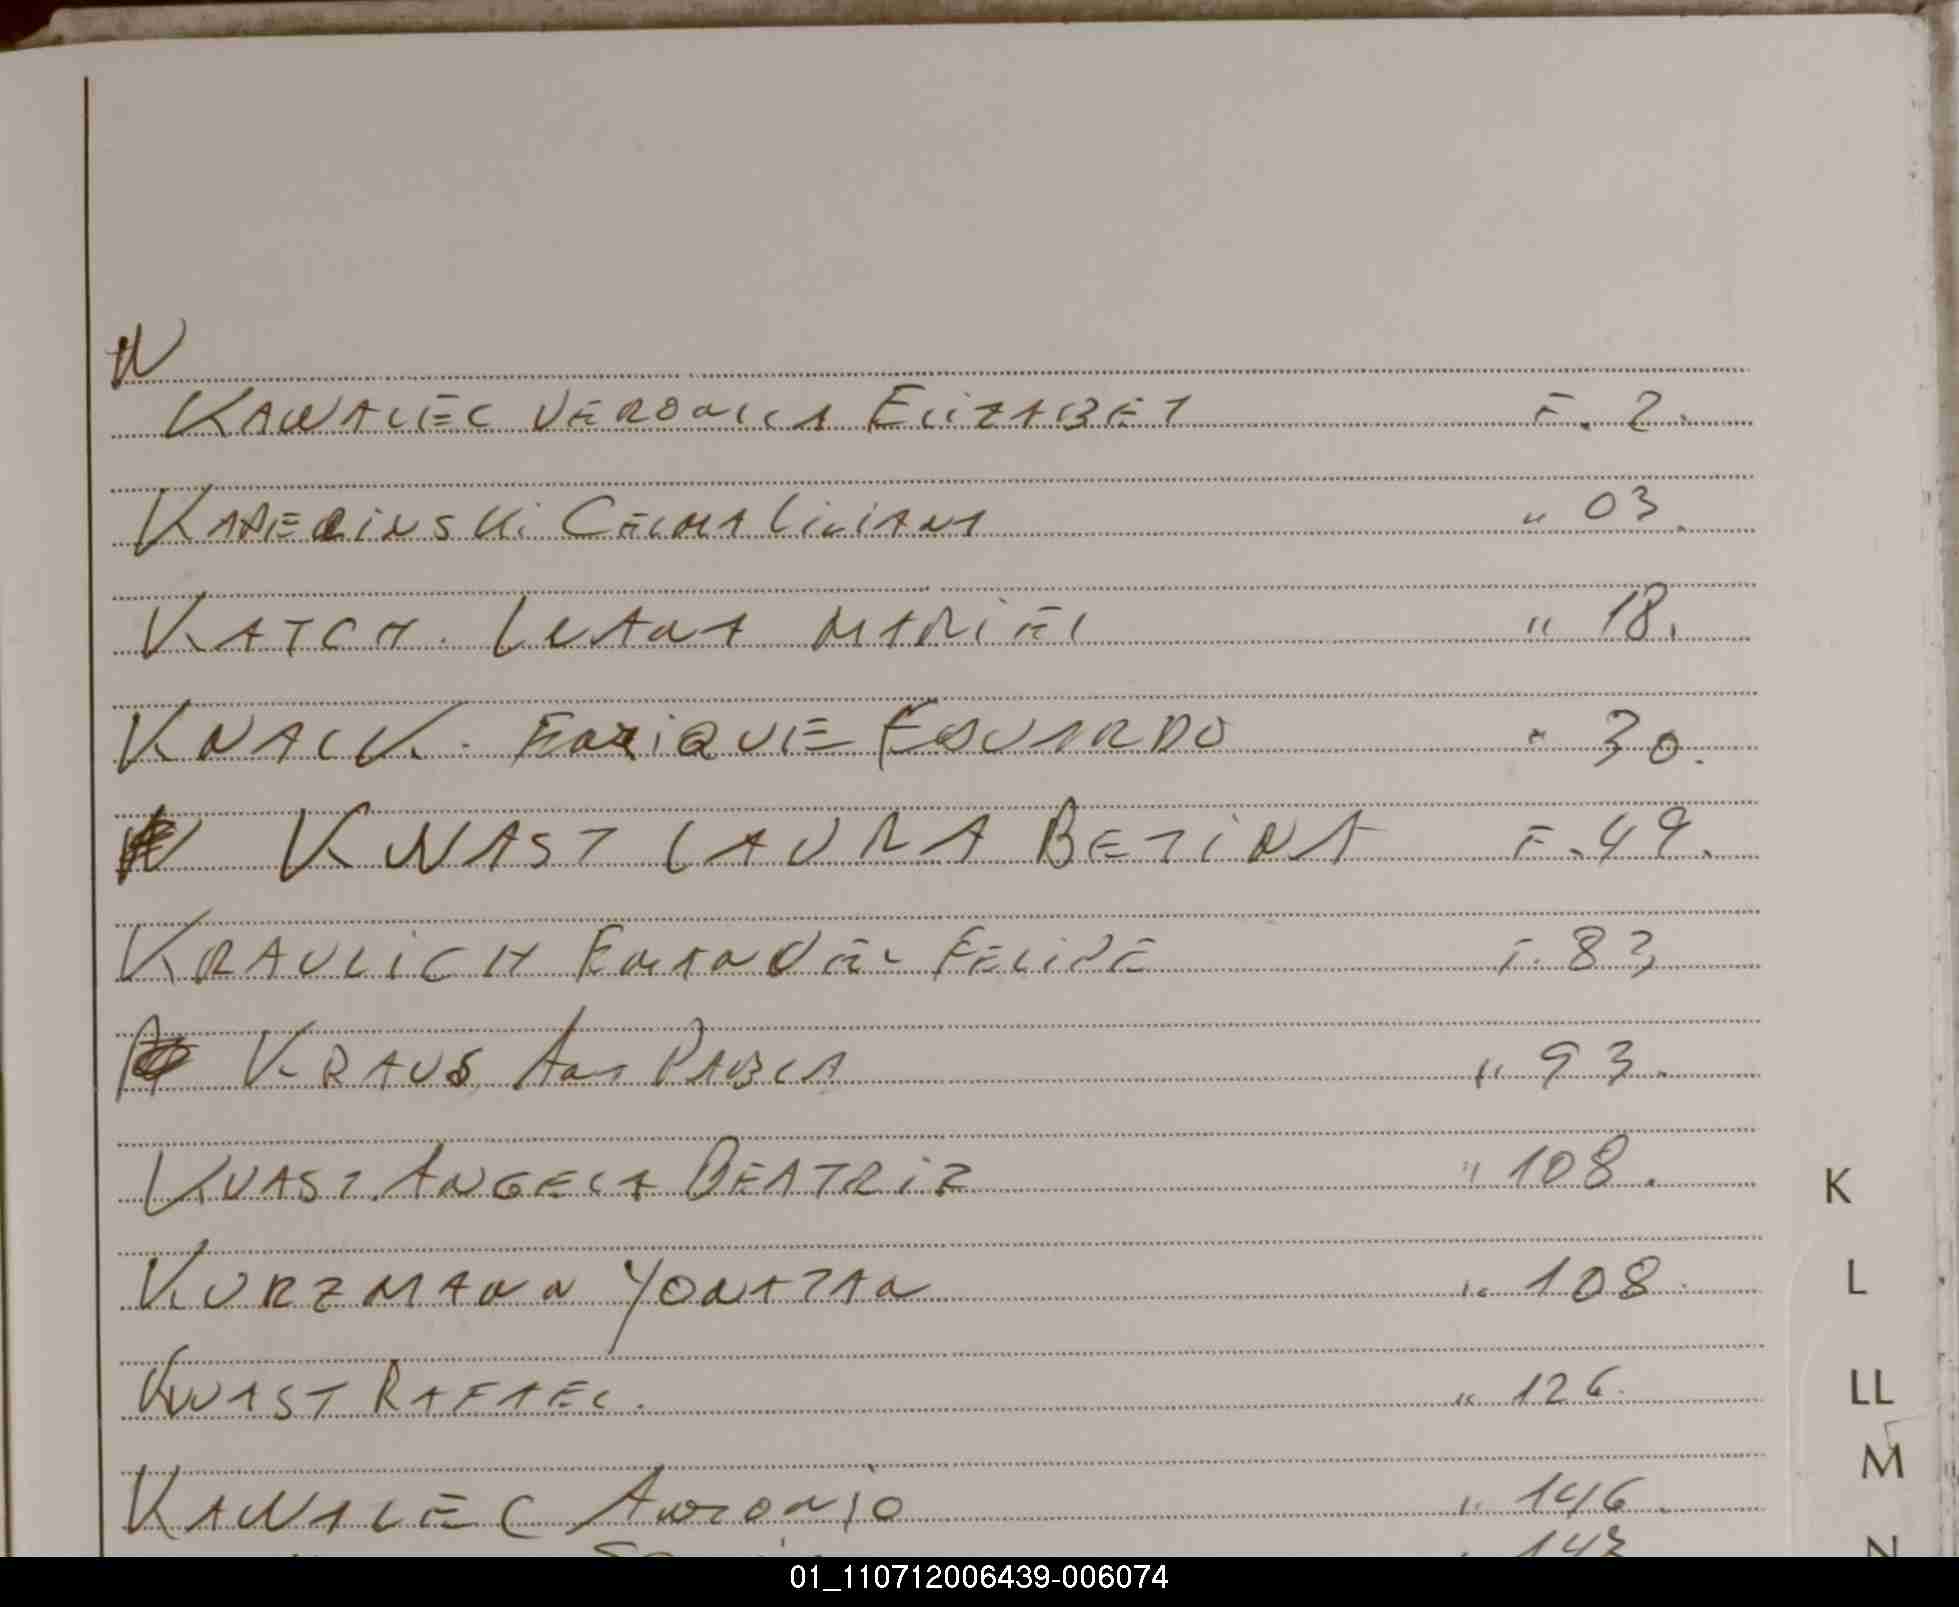 KAWALEC VERONICA ELIZABET F. 2.
CELMA LILIANA " 03.
KATCH. LUANA MARIEL " 18.
KNACK. ENRIQUE EDUARDO " 30.
KNAST LAURA BETINA F. 49.
KRAULICH EMANUEL FELIPE F. 83
KRAUS ANA PABLA " 93.
KUAST. ANGELA BEATRIZ " 108.
KURZMANN YONATAN " 108.
KNAST RAFAEL. " 126.
KAWALEC ANTONIO " 146.
143
K
L
LL
M
N
01_110712006439-006074